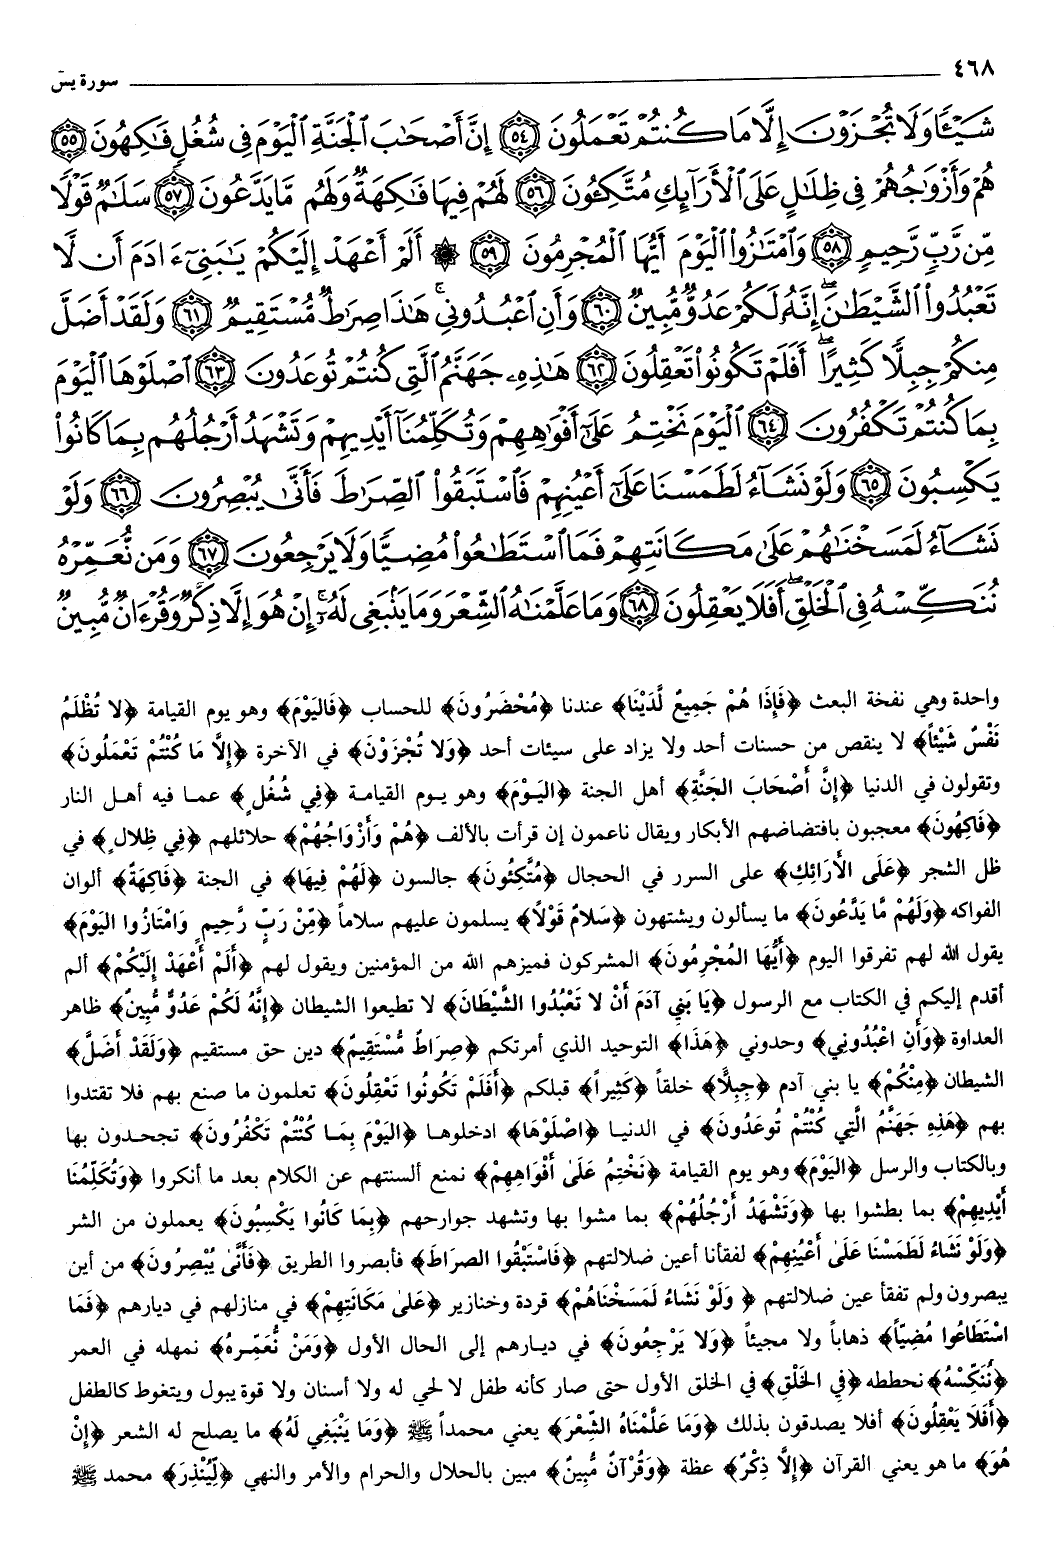 ٤٦٨ سورة يسٓ
شَيْـًٔا وَلَا تُجْزَوْنَ إِلَّا مَا كُنتُمْ تَعْمَلُونَ ۝٥٤ إِنَّ أَصْحَٰبَ ٱلْجَنَّةِ ٱلْيَوْمَ فِى شُغُلٍ فَٰكِهُونَ ۝٥٥
هُمْ وَأَزْوَٰجُهُمْ فِى ظِلَٰلٍ عَلَى ٱلْأَرَآئِكِ مُتَّكِـُٔونَ ۝٥٦ لَهُمْ فِيهَا فَٰكِهَةٌ وَلَهُم مَّا يَدَّعُونَ ۝٥٧ سَلَٰمٌ قَوْلًا
مِّن رَّبٍّ رَّحِيمٍ ۝٥٨ وَٱمْتَٰزُوا۟ ٱلْيَوْمَ أَيُّهَا ٱلْمُجْرِمُونَ ۝٥٩ ۞ أَلَمْ أَعْهَدْ إِلَيْكُمْ يَٰبَنِىٓ ءَادَمَ أَن لَّا
تَعْبُدُوا۟ ٱلشَّيْطَٰنَ ۖ إِنَّهُۥ لَكُمْ عَدُوٌّ مُّبِينٌ ۝٦٠ وَأَنِ ٱعْبُدُونِى ۚ هَٰذَا صِرَٰطٌ مُّسْتَقِيمٌ ۝٦١ وَلَقَدْ أَضَلَّ
مِنكُمْ جِبِلًّا كَثِيرًا ۖ أَفَلَمْ تَكُونُوا۟ تَعْقِلُونَ ۝٦٢ هَٰذِهِۦ جَهَنَّمُ ٱلَّتِى كُنتُمْ تُوعَدُونَ ۝٦٣ ٱصْلَوْهَا ٱلْيَوْمَ
بِمَا كُنتُمْ تَكْفُرُونَ ۝٦٤ ٱلْيَوْمَ نَخْتِمُ عَلَىٰٓ أَفْوَٰهِهِمْ وَتُكَلِّمُنَآ أَيْدِيهِمْ وَتَشْهَدُ أَرْجُلُهُم بِمَا كَانُوا۟
يَكْسِبُونَ ۝٦٥ وَلَوْ نَشَآءُ لَطَمَسْنَا عَلَىٰٓ أَعْيُنِهِمْ فَٱسْتَبَقُوا۟ ٱلصِّرَٰطَ فَأَنَّىٰ يُبْصِرُونَ ۝٦٦ وَلَوْ
نَشَآءُ لَمَسَخْنَٰهُمْ عَلَىٰ مَكَانَتِهِمْ فَمَا ٱسْتَطَٰعُوا۟ مُضِيًّا وَلَا يَرْجِعُونَ ۝٦٧ وَمَن نُّعَمِّرْهُ
نُنَكِّسْهُ فِى ٱلْخَلْقِ ۖ أَفَلَا يَعْقِلُونَ ۝٦٨ وَمَا عَلَّمْنَٰهُ ٱلشِّعْرَ وَمَا يَنۢبَغِى لَهُۥٓ ۚ إِنْ هُوَ إِلَّا ذِكْرٌ وَقُرْءَانٌ مُّبِينٌ
واحدة وهي نفخة البعث ﴿فَإِذَا هُمْ جَمِيعٌ لَّدَيْنَا﴾ عندنا ﴿مُحْضَرُونَ﴾ للحساب ﴿فَالْيَوْمَ﴾ وهو يوم القيامة ﴿لا تُظْلَمُ
نَفْسٌ شَيْئاً﴾ لا ينقص من حسنات أحد ولا يزاد على سيئات أحد ﴿وَلا تُجْزَوْنَ﴾ في الآخرة ﴿إِلَّا مَا كُنْتُمْ تَعْمَلُونَ﴾
وتقولون في الدنيا ﴿إِنَّ أَصْحَابَ الجَنَّةِ﴾ أهل الجنة ﴿اليَوْمَ﴾ وهو يوم القيامة ﴿فِي شُغُلٍ﴾ عما فيه أهل النار
﴿فَاكِهُونَ﴾ معجبون بافتضاضهم الأبكار ويقال ناعمون إن قرأت بالألف ﴿هُمْ وَأَزْوَاجُهُمْ﴾ حلائلهم ﴿فِي ظِلالٍ﴾ في
ظل الشجر ﴿عَلَى الأَرَائِكِ﴾ على السرر في الحجال ﴿مُتَّكِئُونَ﴾ جالسون ﴿لَهُمْ فِيهَا﴾ في الجنة ﴿فَاكِهَةٌ﴾ ألوان
الفواكه ﴿وَلَهُمْ مَّا يَدَّعُونَ﴾ ما يسألون ويشتهون ﴿سَلامٌ قَوْلاً﴾ يسلمون عليهم سلاماً ﴿مِّنْ رَبٍّ رَّحِيمٍ وَامْتَازُوا اليَوْمَ﴾
يقول الله لهم تفرقوا اليوم ﴿أَيُّهَا المُجْرِمُونَ﴾ المشركون فميزهم الله من المؤمنين ويقول لهم ﴿أَلَمْ أَعْهَدْ إِلَيْكُمْ﴾ ألم
أقدم إليكم في الكتاب مع الرسول ﴿يَا بَنِي آدَمَ أَنْ لا تَعْبُدُوا الشَّيْطَانَ﴾ لا تطيعوا الشيطان ﴿إِنَّهُ لَكُمْ عَدُوٌّ مُّبِينٌ﴾ ظاهر
العداوة ﴿وَأَنِ اعْبُدُونِي﴾ وحدوني ﴿هَذَا﴾ التوحيد الذي أمرتكم ﴿صِرَاطٌ مُّسْتَقِيمٌ﴾ دين حق مستقيم ﴿وَلَقَدْ أَضَلَّ﴾
الشيطان ﴿مِنْكُمْ﴾ يا بني آدم ﴿جِبِلّاً﴾ خلقاً ﴿كَثِيراً﴾ قبلكم ﴿أَفَلَمْ تَكُونُوا تَعْقِلُونَ﴾ تعلمون ما صنع بهم فلا تقتدوا
بهم ﴿هَذِهِ جَهَنَّمُ الَّتِي كُنْتُمْ تُوعَدُونَ﴾ في الدنيا ﴿اصْلَوْهَا﴾ ادخلوها ﴿اليَوْمَ بِمَا كُنْتُمْ تَكْفُرُونَ﴾ تجحدون بها
وبالكتاب والرسل ﴿اليَوْمَ﴾ وهو يوم القيامة ﴿نَخْتِمُ عَلَىٰ أَفْوَاهِهِمْ﴾ نمنع ألسنتهم عن الكلام بعد ما أنكروا ﴿وَتُكَلِّمُنَا
أَيْدِيهِمْ﴾ بما بطشوا بها ﴿وَتَشْهَدُ أَرْجُلُهُمْ﴾ بما مشوا بها وتشهد جوارحهم ﴿بِمَا كَانُوا يَكْسِبُونَ﴾ يعملون من الشر
﴿وَلَوْ نَشَاءُ لَطَمَسْنَا عَلَىٰ أَعْيُنِهِمْ﴾ لفقأنا أعين ضلالتهم ﴿فَاسْتَبْقُوا الصرَاطَ﴾ فأبصروا الطريق ﴿فَأَنَّىٰ يُبْصِرُونَ﴾ من أين
يبصرون ولم تفقأ عين ضلالتهم ﴿وَلَوْ نَشَاءُ لَمَسَخْنَاهُمْ﴾ قردة وخنازير ﴿عَلىٰ مَكَانَتِهِمْ﴾ في منازلهم في ديارهم ﴿فَمَا
اسْتَطَاعُوا مُضِيّاً﴾ ذهاباً ولا مجيئاً ﴿وَلا يَرْجِعُونَ﴾ في ديارهم إلى الحال الأول ﴿وَمَنْ نُّعَمِّرهُ﴾ نمهله في العمر
﴿نُنَكِّسْهُ﴾ نحططه ﴿فِي الخَلْقِ﴾ في الخلق الأول حتى صار كأنه طفل لا لحي له ولا أسنان ولا قوة يبول ويتغوط كالطفل
﴿أَفَلَا يَعْقِلُونَ﴾ أفلا يصدقون بذلك ﴿وَمَا عَلَّمْنَاهُ الشِّعْرَ﴾ يعني محمداً ﷺ ﴿وَمَا يَنْبَغِي لَهُ﴾ ما يصلح له الشعر ﴿إِنْ
هُوَ﴾ ما هو يعني القرآن ﴿إِلَّا ذِكْرٌ﴾ عظة ﴿وَقُرْآنٌ مُّبِينٌ﴾ مبين بالحلال والحرام والأمر والنهي ﴿لِّيُنْذِرَ﴾ محمد ﷺ